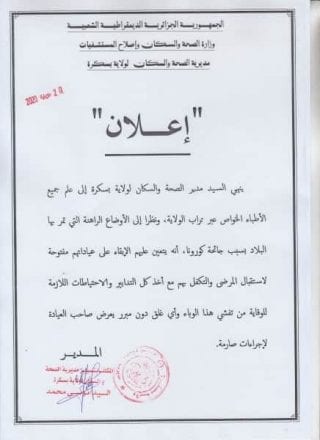 الجمهورية الجزائرية الديمقراطية الشعبية
وزارة الصحة والسكان وإصلاح المستشفيات
مديرية الصحة والسكان لولاية بسكرة
"إعلان"
ينهي السيد مدير الصحة والسكان لولاية بسكرة إلى علم جميع
الأطباء الخواص عبر تراب الولاية، ونظرا إلى الأوضاع الراهنة التي تمر بها
البلاد بسبب جائحة كورونا، أنه يتعين عليهم الإبقاء على عياداتهم مفتوحة
لاستقبال المرضى والتكفل بهم مع أخذ كل التدابير والاحتياطات اللازمة
للوقاية من تفشي هذا الوباء وأي غلق دون مبرر يعرض صاحب العيادة
لإجراءات صارمة.
المدير
مديرية الصحة
بسكرة
السيد محمد